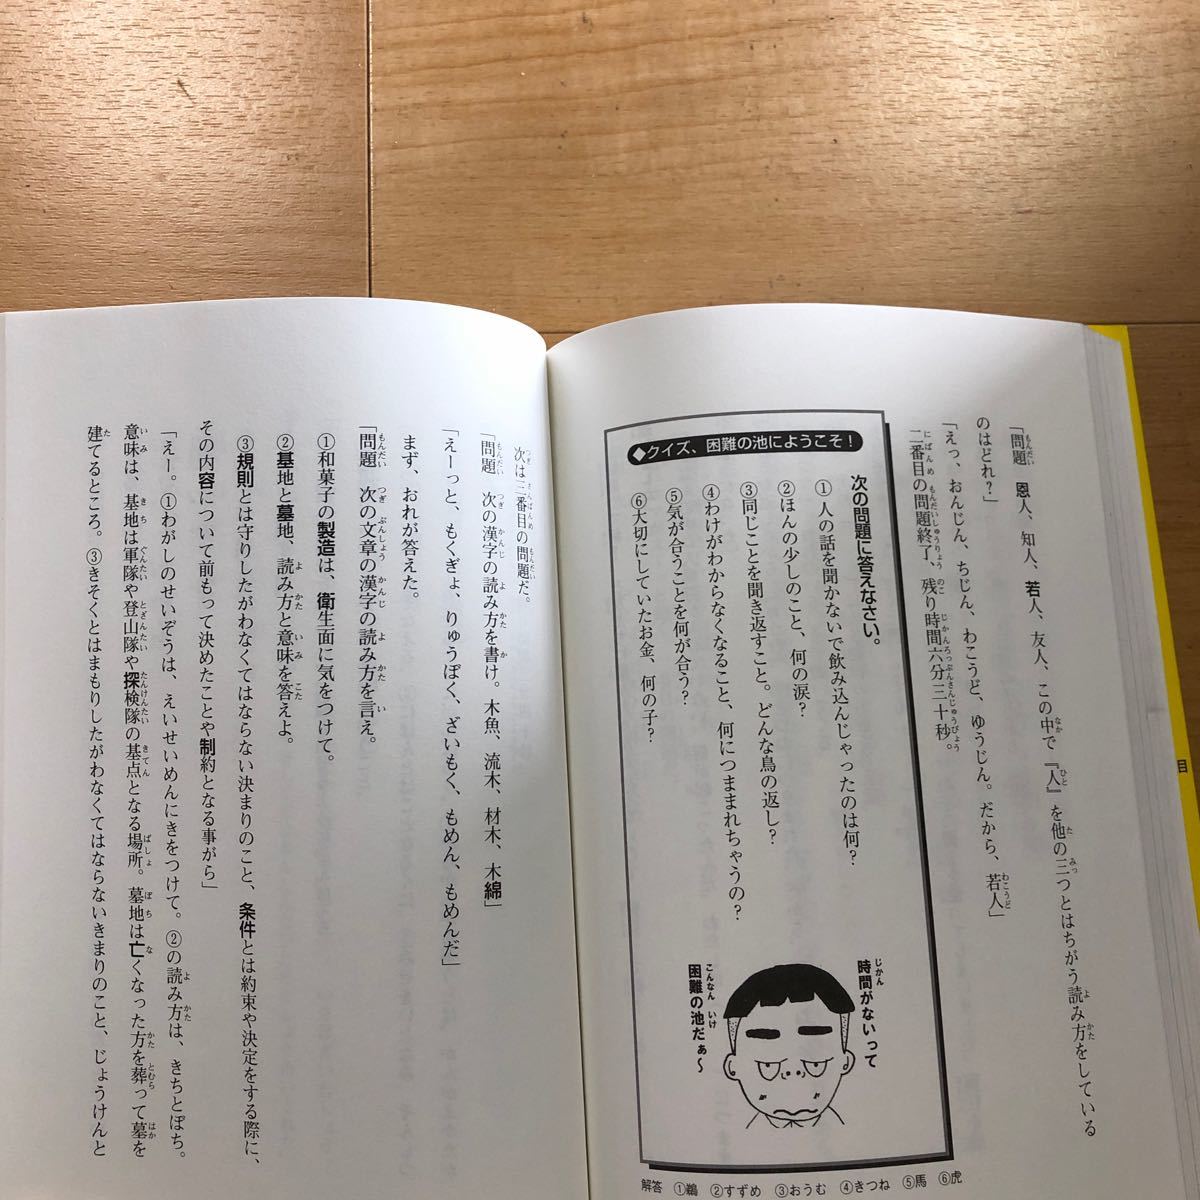 「問題　恩人、知人、若人、友人、この中で『人』を他の三つとはちがう読み方をしている
のはどれ？」
「えっ、おんじん、ちじん、わこうど、ゆうじん。だから、若人」
二番目の問題終了、残り時間六分三十秒。
◆クイズ、困難の池にようこそ！
次の問題に答えなさい。
①人の話を聞かないで飲み込んじゃったのは何？
②ほんの少しのこと、何の涙？
③同じことを聞き返すこと。どんな鳥の返し？
④わけがわからなくなること、何につままれちゃうの？
⑤気が合うことを何が合う？
⑥大切にしていたお金、何の子？
時間がないって
困難の池だぁ〜
解答　①鵜　②すずめ　③おうむ　④きつね　⑤馬　⑥虎
目
次は三番目の問題だ。
「問題　次の漢字の読み方を書け。木魚、流木、材木、木綿」
「えーっと、もくぎょ、りゅうぼく、ざいもく、もめん、もめんだ」
まず、おれが答えた。
「問題　次の文章の漢字の読み方を言え。
①和菓子の製造は、衛生面に気をつけて。
②基地と墓地、読み方と意味を答えよ。
③規則とは守りしたがわなくてはならない決まりのこと、条件とは約束や決定をする際に、
その内容について前もって決めたことや制約となる事がら」
「えー。①わがしのせいぞうは、えいせいめんにきをつけて。②の読み方は、きちとぼち。
意味は、基地は軍隊や登山隊や探検隊の基点となる場所。墓地は亡くなった方を葬って墓を
建てるところ。③きそくとはまもりしたがわなくてはならないきまりのこと、じょうけんと